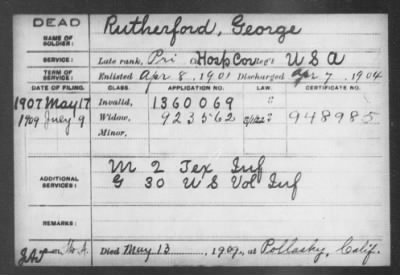 DEAD
NAME OF SOLDIER: Rutherford, George
SERVICE: Late rank, Pri Co. Hosp Cor Reg't U S A
TERM OF SERVICE: Enlisted Apr. 8, 1901 Discharged Apr 7, 1904
DATE OF FILING. CLASS. APPLICATION NO. LAW. CERTIFICATE NO.
1907 May 17 Invalid, 1360069 "
1909 July 9 Widow, 923562 948985
Minor,
ADDITIONAL SERVICES: M 2 Tex Inf
G 30 U S Vol Inf
REMARKS:
Died May 13, 1909, at Pollasky, Calif.